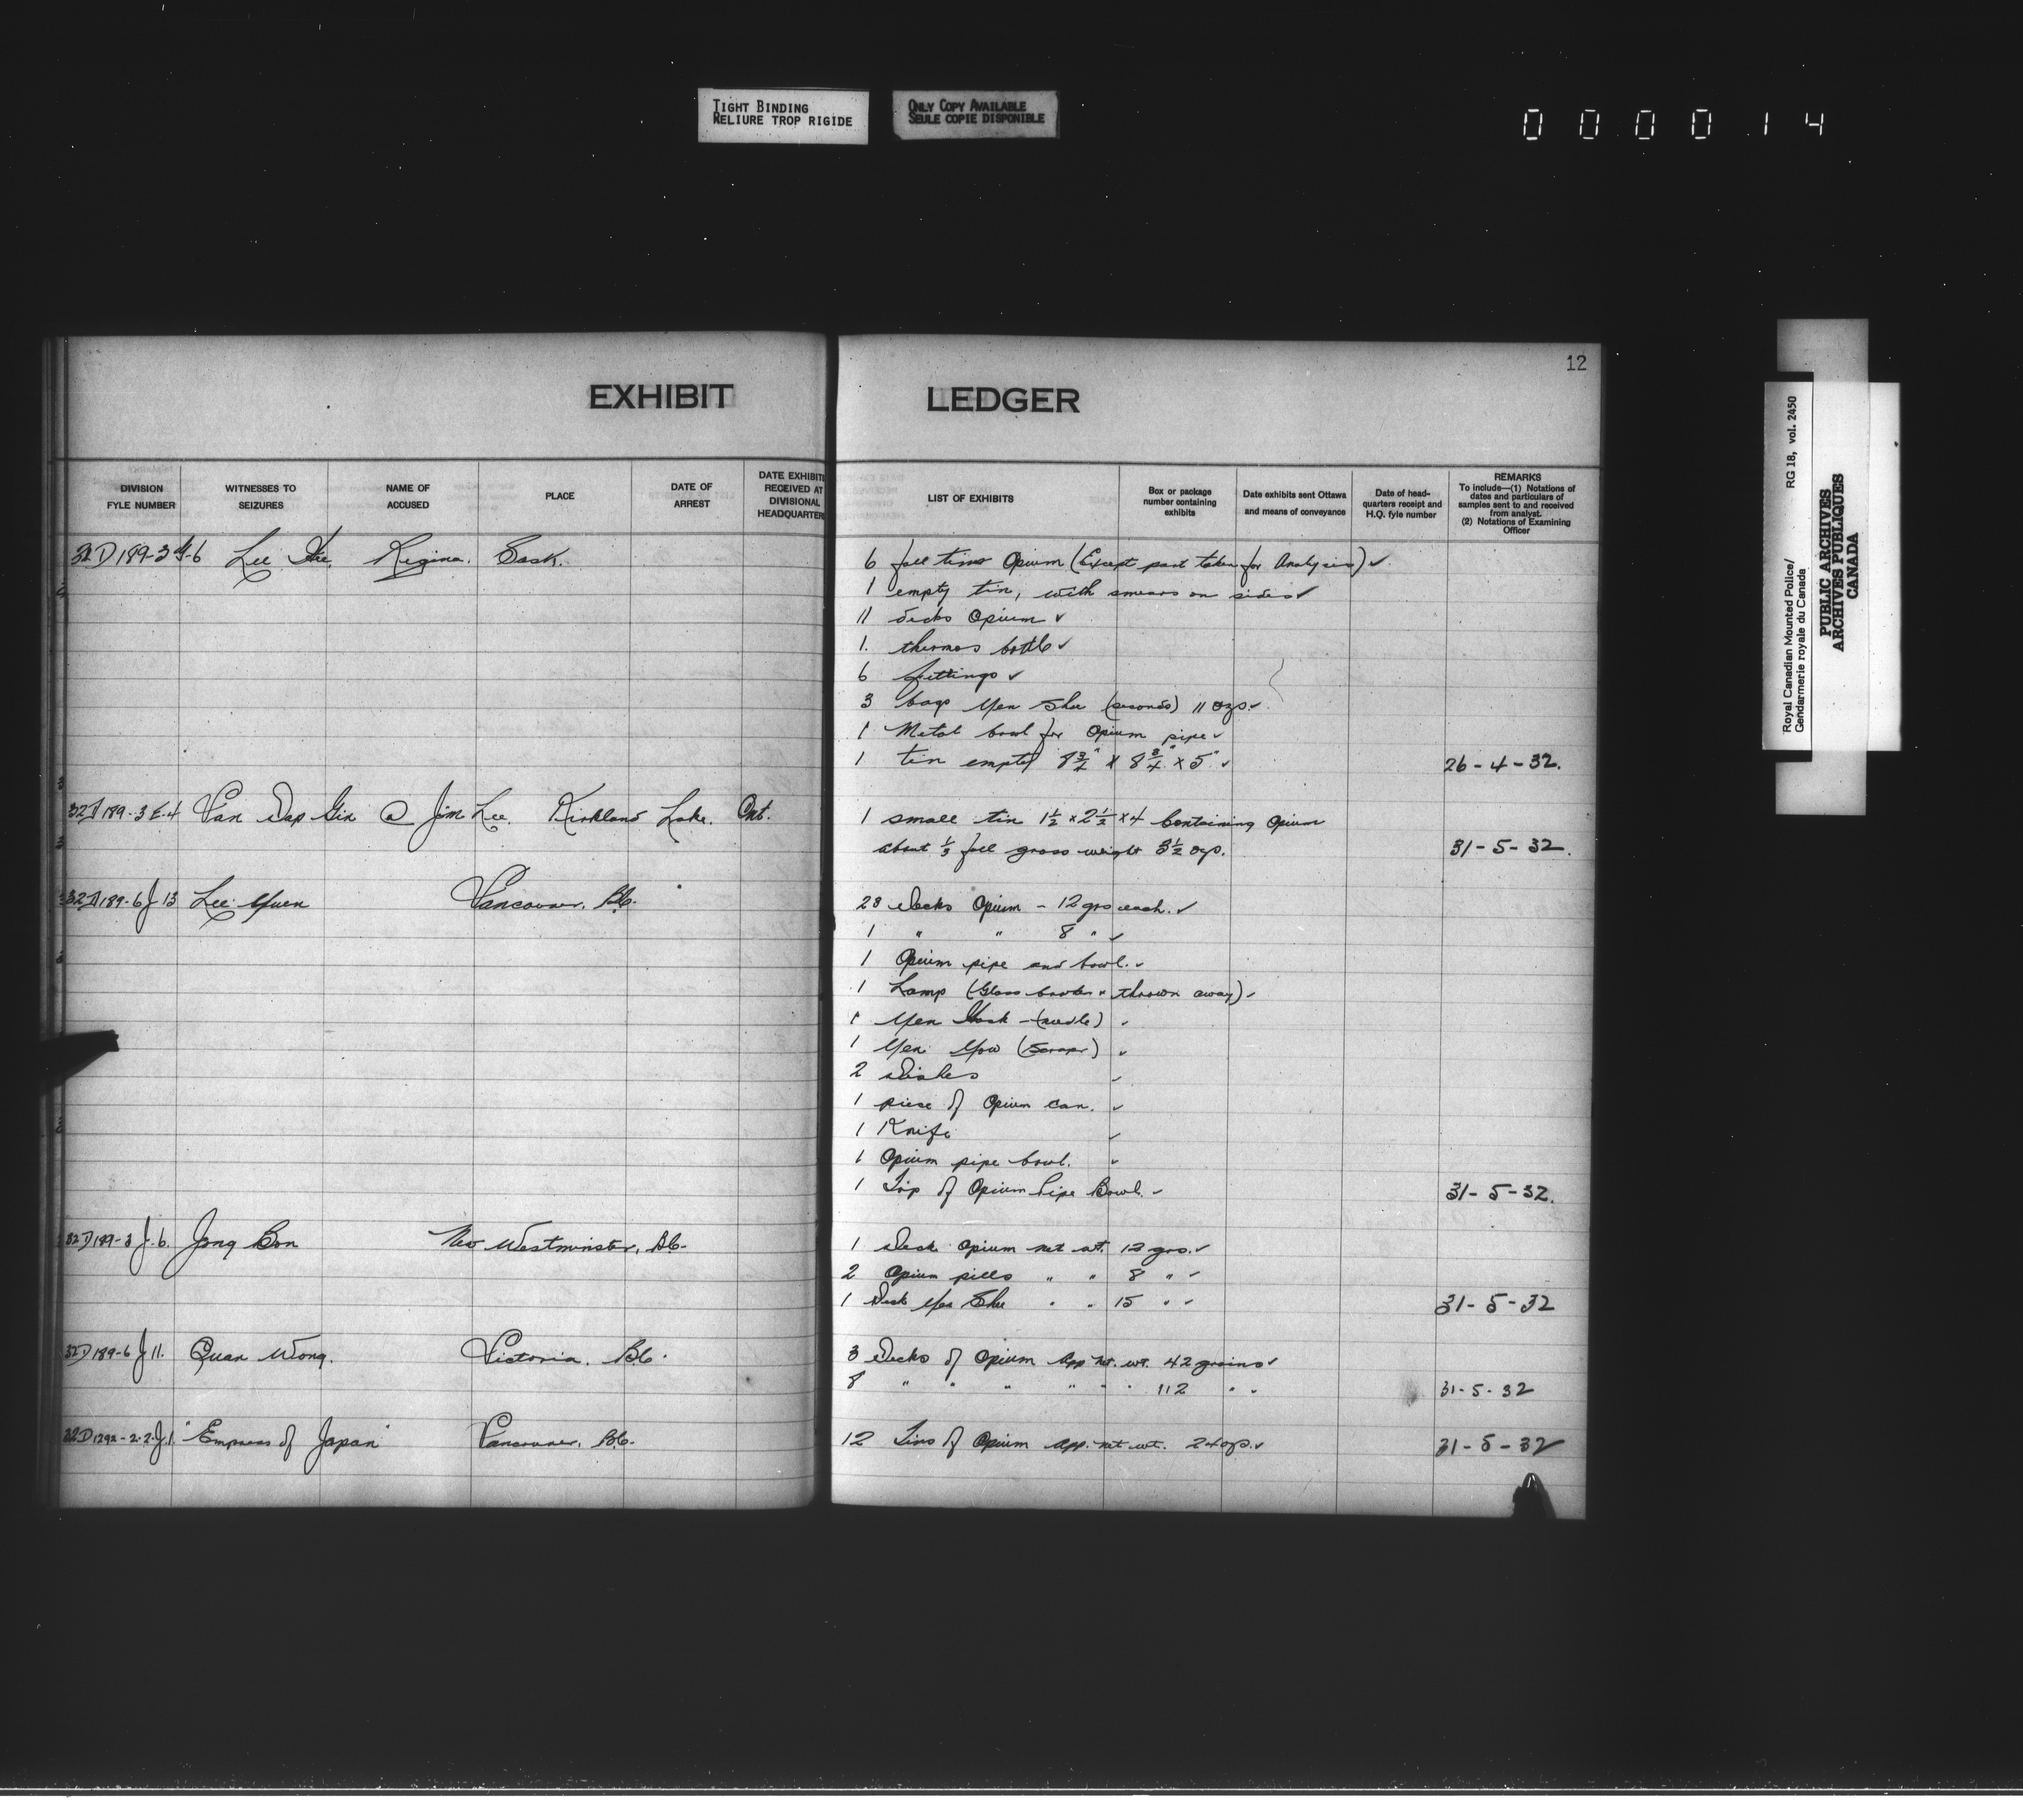 TIGHT BINDING
RELIURE TROP RIGIDE
ONLY COPY AVAILABLE
SEULE COPIE DISPONIBLE
0 0 0 0 1 4
12
EXHIBIT LEDGER
DIVISION FYLE NUMBER
WITNESSES TO SEIZURES
NAME OF ACCUSED
PLACE
DATE OF ARREST
DATE EXHIBITS RECEIVED AT DIVISIONAL HEADQUARTERS
LIST OF EXHIBITS
Box or package number containing exhibits
Date exhibits sent Ottawa and means of conveyance
Date of head-quarters receipt and H.Q. fyle number
REMARKS
To include—(1) Notations of dates and particulars of samples sent to and received from analyst.
(2) Notations of Examining Officer
32D189-3 G-6 Lee Regina. Sask.
6 full tins Opium (Except part taken for Analysis) ✓
1 empty tin, with smears on sides ✓
11 decks Opium ✓
1. thermos bottle ✓
6 fittings ✓
3 bags Yen Shee (seconds) 11 ozs. ✓
1 Metal bowl for Opium pipe ✓
1 tin empty × 8 3/4" × 5" ✓ 26-4-32.
32D189-3 E-4 Van Dap Gin @ Jim Lee. Kirkland Lake. Ont.
1 small tin 1½ × 2½ × 4 Containing Opium
about 1/3 full gross weight 3½ ozs. 31-5-32.
32D189-6 J 13 Lee Yuen Vancouver. B.C.
23 Decks Opium - 12 grs each. ✓
1 " " 8 " ✓
1 Opium pipe and bowl. ✓
1 Lamp (Glass broken & thrown away) ✓
1 Yen Hock - (needle) ✓
1 Yen Yow (Scraper) ✓
2 Dishes ✓
1 piece of Opium can. ✓
1 Knife ✓
1 Opium pipe bowl. ✓
1 Top of Opium Pipe Bowl. ✓ 31-5-32.
32D189-3 J-6. Jong Bon New Westminster, B.C.
1 Deck Opium net wt. 12 grs. ✓
2 Opium pills " " 8 " ✓
1 Deck Yen Shee " " 15 " ✓ 31-5-32
32D189-6 J 11. Quan Wong. Victoria. B.C.
3 Decks of Opium App. Net. wt. 42 grains ✓
8 " " " " " " 112 " ✓ 31-5-32
32D1292-2-2-J.1. "Empress of Japan" Vancouver. B.C.
12 Tins of Opium App. net wt. 24 ozs. ✓ 31-5-32
Royal Canadian Mounted Police/
Gendarmerie royale du Canada
RG 18, vol. 2450
PUBLIC ARCHIVES
ARCHIVES PUBLIQUES
CANADA